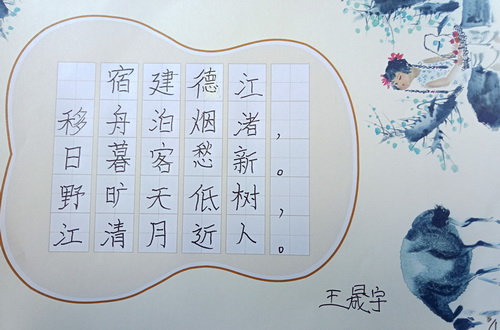 宿建德江
移舟泊烟渚，
日暮客愁新。
野旷天低树，
江清月近人。
王晟宇